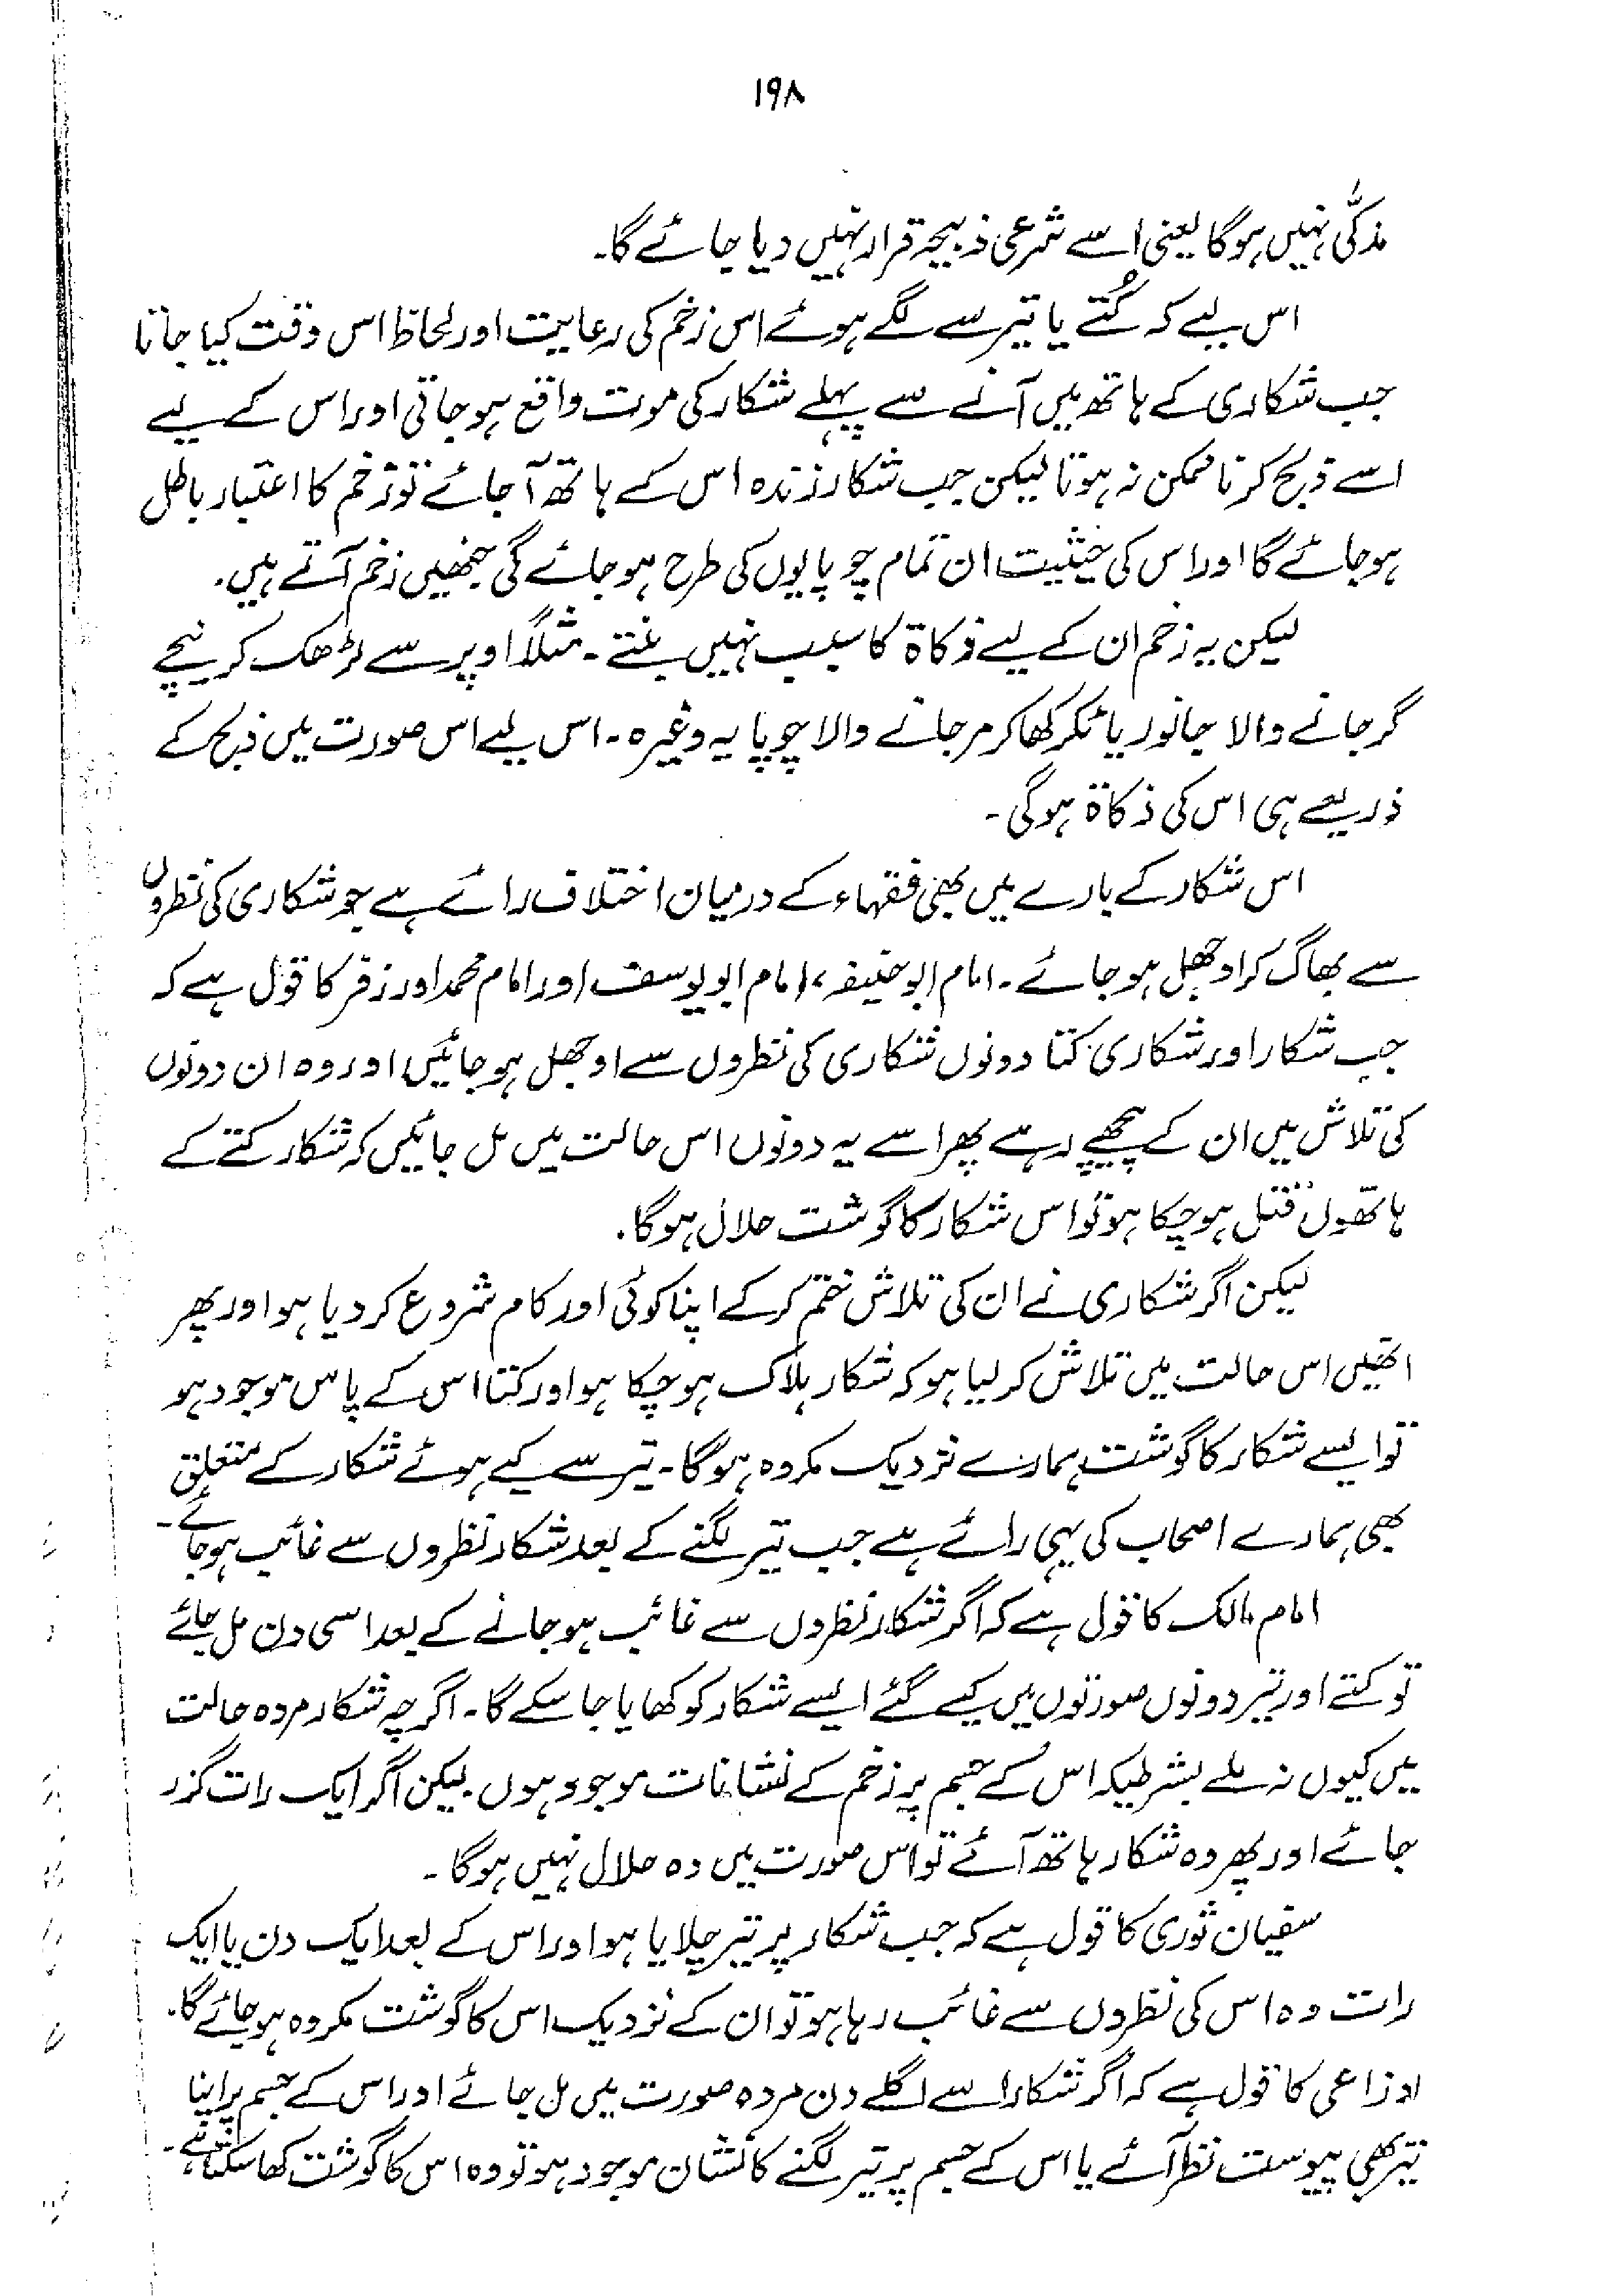 ۱۹۸
مذکّٰی نہیں ہوگا یعنی اسے شرعی ذبیحہ قرار نہیں دیا جائے گا۔
اس لیے کہ کُتے یا تیر سے لگے ہوئے اس زخم کی رعایت اور لحاظ اس وقت کیا جاتا
جب شکاری کے ہاتھ میں آنے سے پہلے شکار کی موت واقع ہو جاتی اور اس کے لیے
اسے ذبح کرنا ممکن نہ ہوتا لیکن جب شکار زندہ اس کے ہاتھ آ جائے تو زخم کا اعتبار باطل
ہو جائے گا اور اس کی حیثیت ان تمام چوپایوں کی طرح ہو جائے گی جنھیں زخم آتے ہیں۔
لیکن یہ زخم ان کے لیے ذکاۃ کا سبب نہیں بنتے۔ مثلاً اوپر سے لڑھک کر نیچے
گر جانے والا جانور یا ٹکر کھا کر مر جانے والا چوپایہ وغیرہ۔ اس لیے اس صورت میں ذبح کے
ذریعے ہی اس کی ذکاۃ ہوگی۔
اس شکار کے بارے میں بھی فقہاء کے درمیان اختلاف رائے ہے جو شکاری کی نظروں
سے بھاگ کر اوجھل ہو جائے۔ امام ابو حنیفہ، امام ابو یوسف اور امام محمد اور زفر کا قول ہے کہ
جب شکار اور شکاری کتا دونوں شکاری کی نظروں سے اوجھل ہو جائیں اور وہ ان دونوں
کی تلاش میں ان کے پیچھے رہے پھر اسے یہ دونوں اس حالت میں مل جائیں کہ شکار کتے کے
ہاتھوں قتل ہو چکا ہو تو اس شکار کا گوشت حلال ہوگا۔
لیکن اگر شکاری نے ان کی تلاش ختم کر کے اپنا کوئی اور کام شروع کر دیا ہو اور پھر
انھیں اس حالت میں تلاش کر لیا ہو کہ شکار ہلاک ہو چکا ہو اور کتا اس کے پاس موجود ہو
تو ایسے شکار کا گوشت ہمارے نزدیک مکروہ ہوگا۔ تیر سے کیے ہوئے شکار کے متعلق
بھی ہمارے اصحاب کی یہی رائے ہے جب تیر لگنے کے بعد شکار نظروں سے غائب ہو جائے۔
امام مالک کا قول ہے کہ اگر شکار نظروں سے غائب ہو جانے کے بعد اسی دن مل جائے
تو کتے اور تیر دونوں صورتوں میں کیے گئے ایسے شکار کو کھایا جا سکے گا۔ اگرچہ شکار مردہ حالت
میں کیوں نہ ملے بشرطیکہ اس کے جسم پر زخم کے نشانات موجود ہوں لیکن اگر ایک رات گزر
جائے اور پھر وہ شکار ہاتھ آئے تو اس صورت میں وہ حلال نہیں ہوگا۔
سفیان ثوری کا قول ہے کہ جب شکار پر تیر چلایا ہو اور اس کے بعد ایک دن یا ایک
رات وہ اس کی نظروں سے غائب رہا ہو تو ان کے نزدیک اس کا گوشت مکروہ ہو جائے گا۔
اوزاعی کا قول ہے کہ اگر شکار اسے اگلے دن مردہ صورت میں مل جائے اور اس کے جسم پر اپنا
تیر بھی پیوست نظر آئے یا اس کے جسم پر تیر لگنے کا نشان موجود ہو تو وہ اس کا گوشت کھا سکتا ہے۔